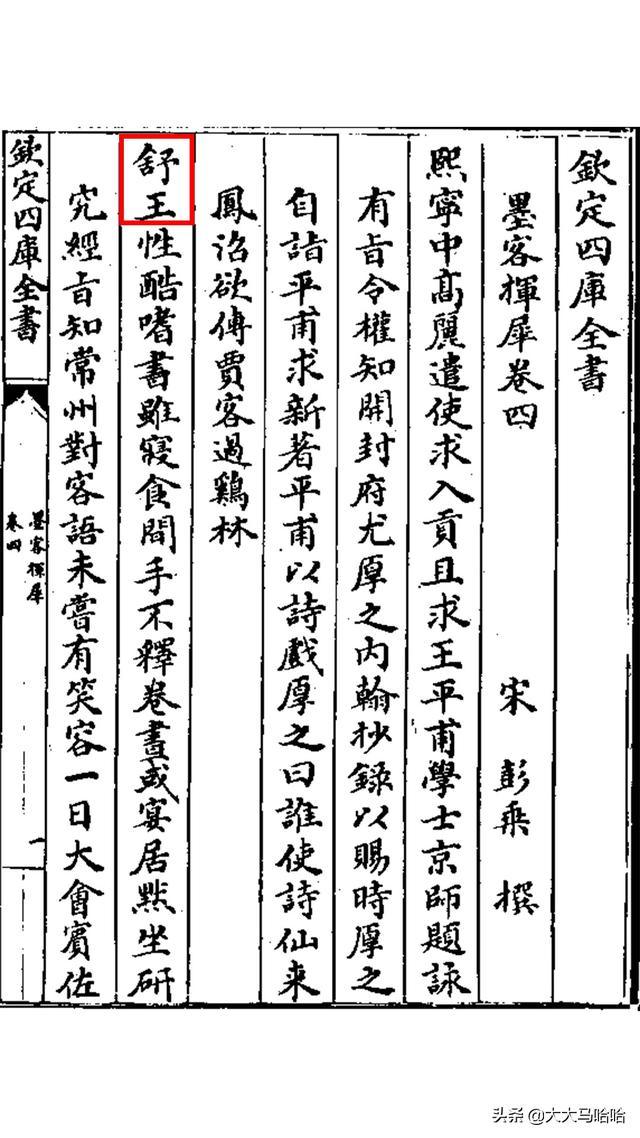 欽定四庫全書
墨客揮犀卷四
宋 彭乘 撰
熙寧中高麗遣使求入貢且求王平甫學士京師題詠
有旨令權知開封府尤厚之内翰抄錄以賜時厚之
自詣平甫求新著平甫以詩戲厚之曰誰使詩仙来
鳳沼欲傳賈客過鷄林
舒王性酷嗜書雖寢食間手不釋卷晝或宴居默坐研
究經旨知常州對客語未嘗有笑容一日大會賓佐
欽定四庫全書
墨客揮犀
卷四
一
头条 @大大马哈哈